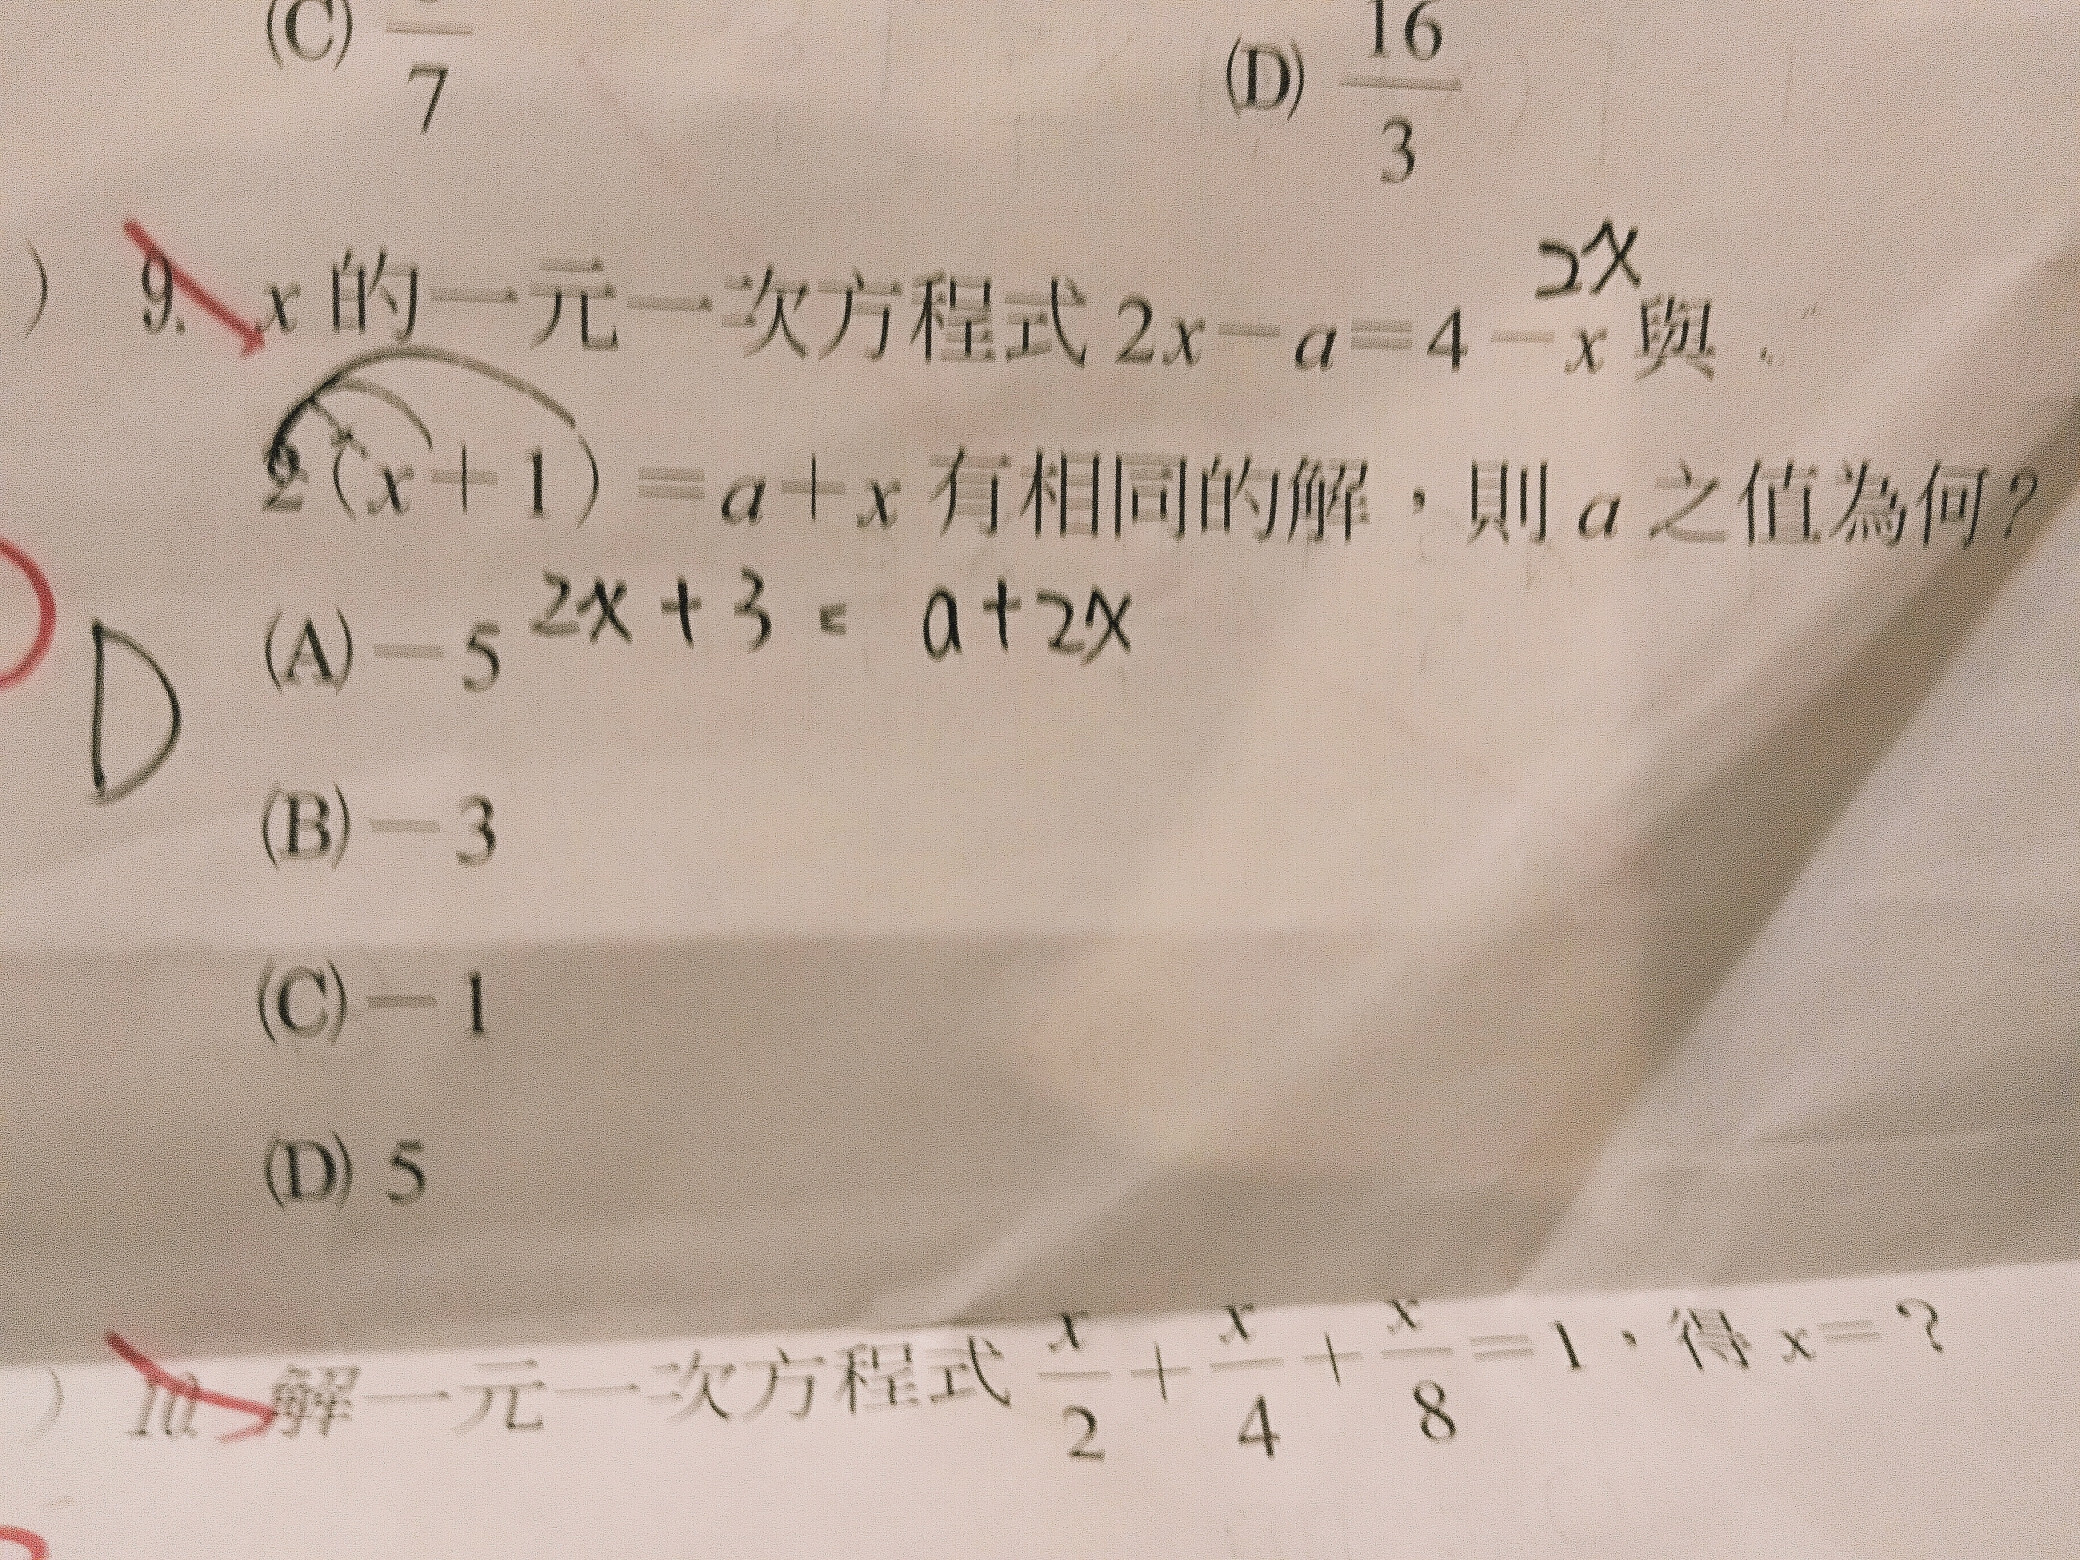 (C) 7
(D) 16/3
) 9. x 的一元一次方程式 2x－a＝4－x 與
2x
2(x＋1)＝a＋x 有相同的解，則 a 之值為何？
(A)－5
2x + 3 = a+2x
D
(B)－3
(C)－1
(D) 5
) 10. 解一元一次方程式 x/2＋x/4＋x/8＝1，得 x＝？